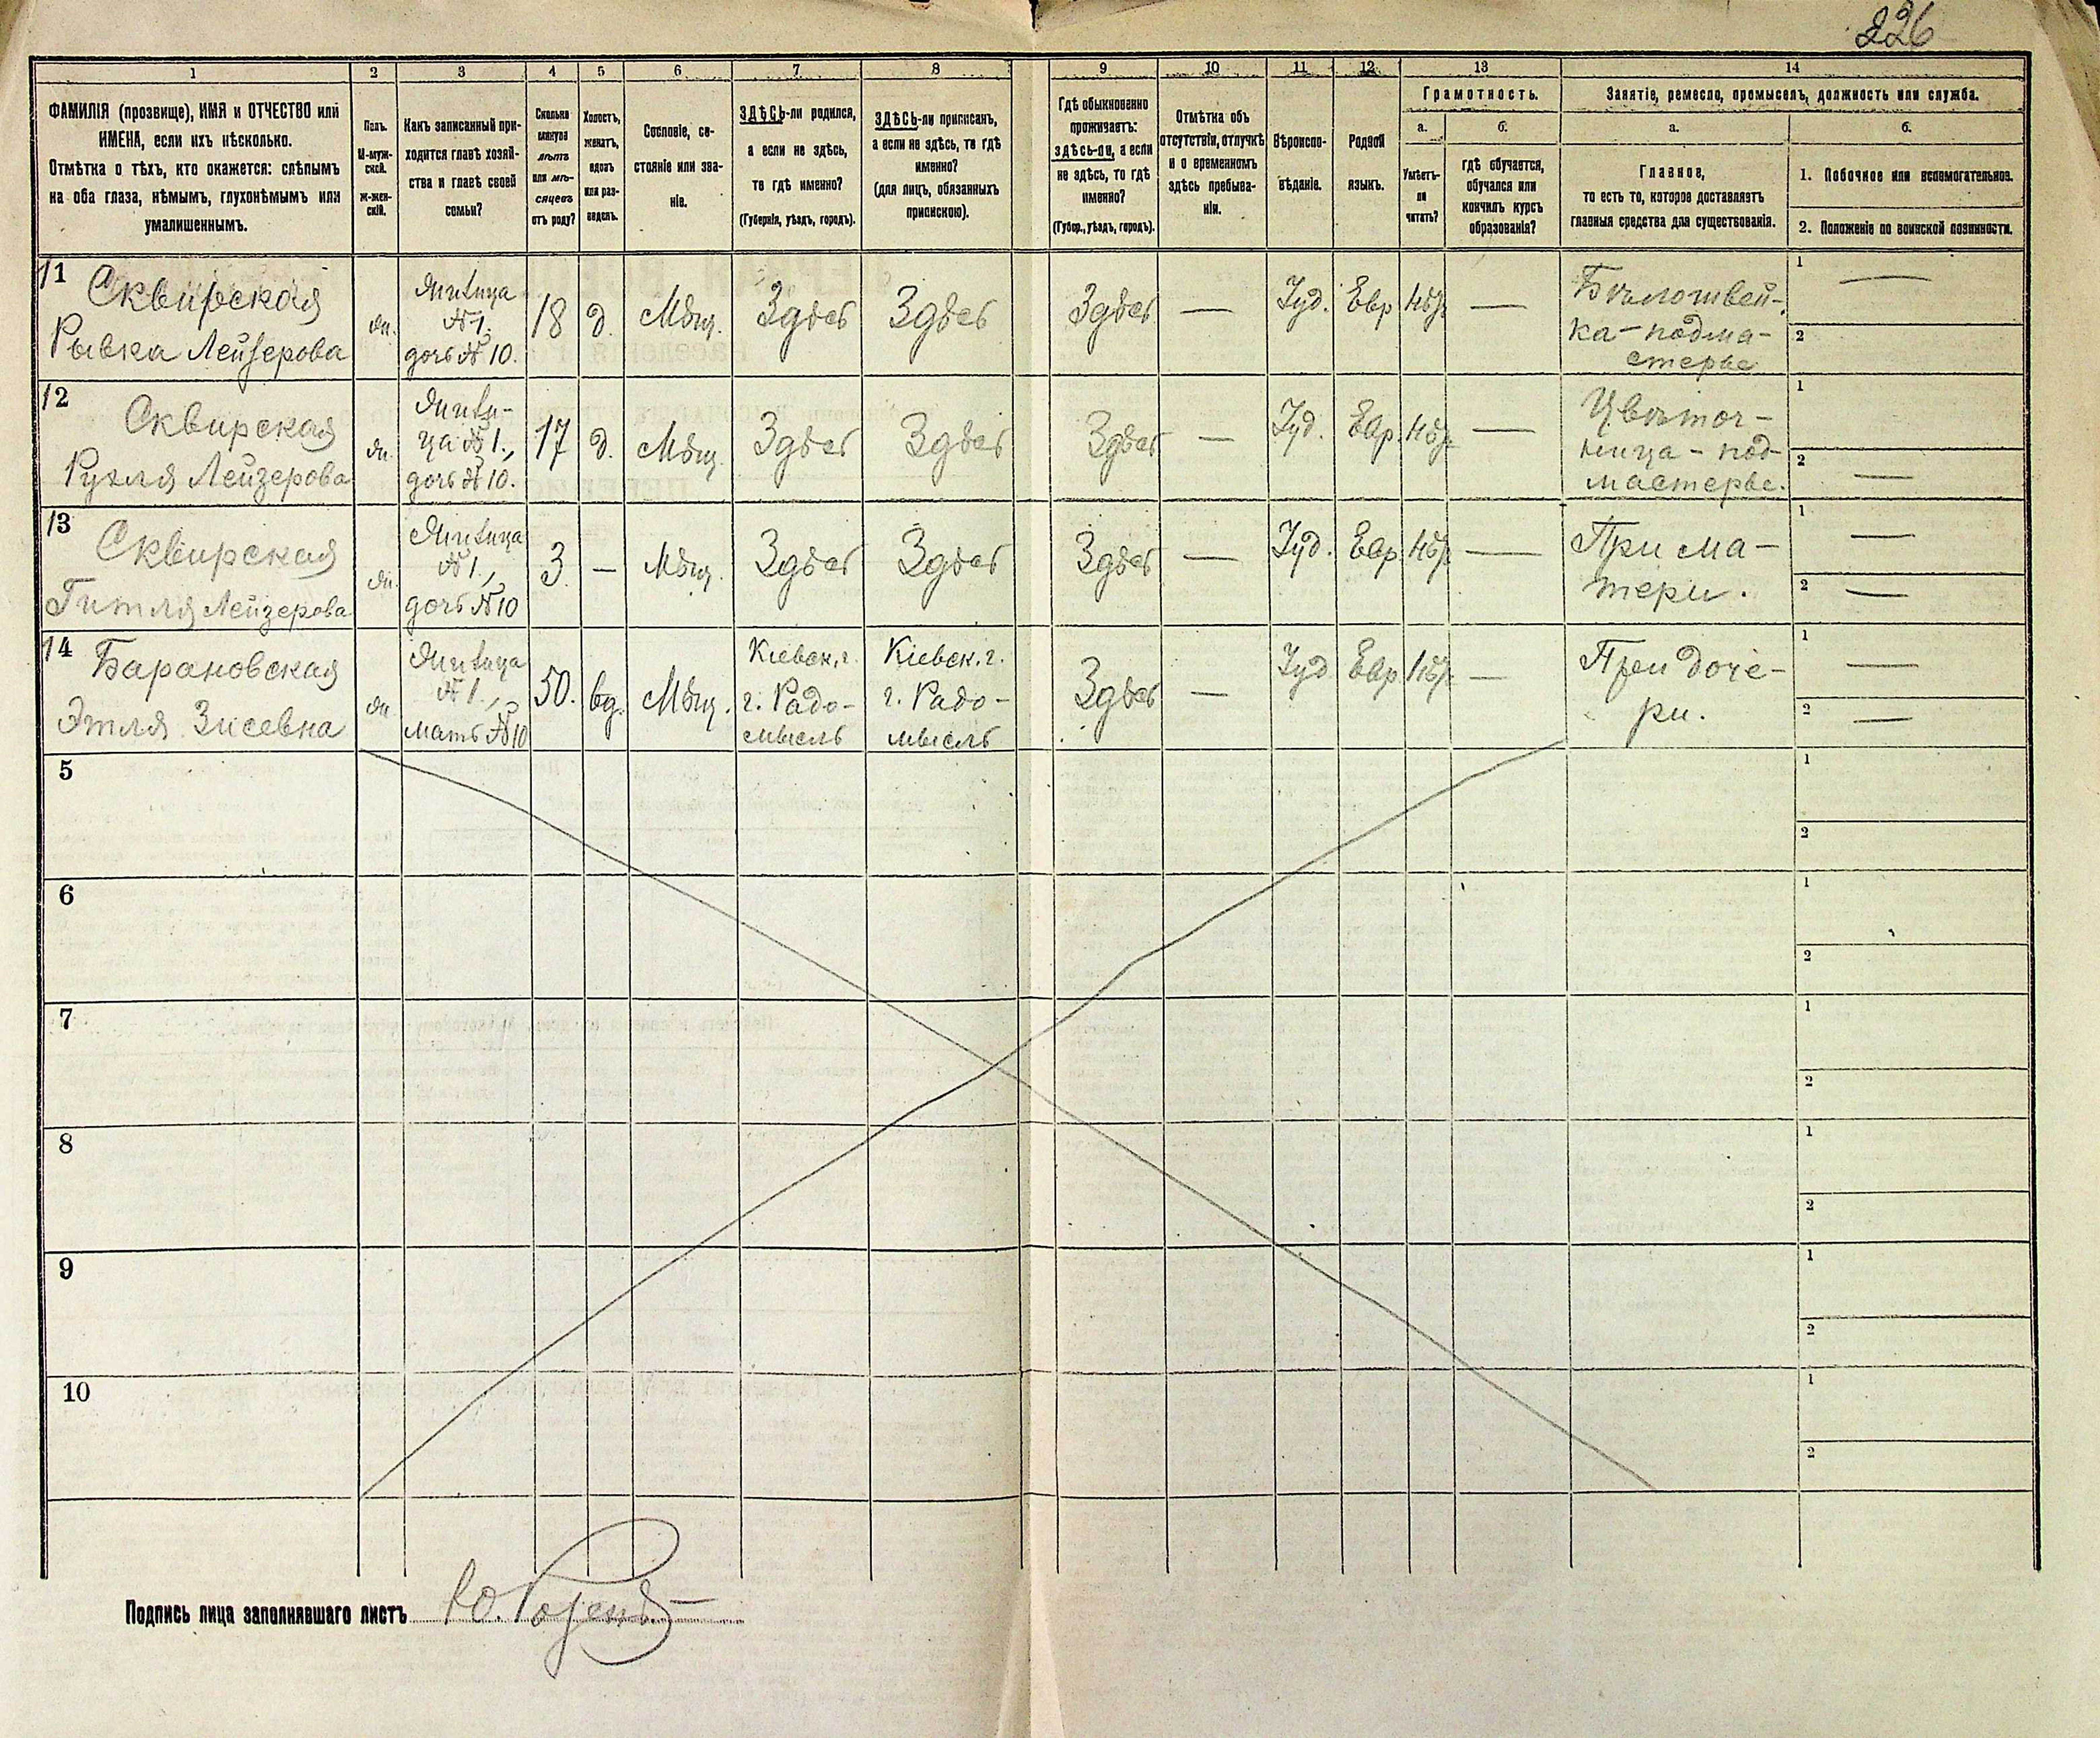 226
1 2 3 4 5 6 7 8 9 10 11 12 13 14
ФАМИЛІЯ (прозвище), ИМЯ и ОТЧЕСТВО или
ИМЕНА, если ихъ нѣсколько.
Отмѣтка о тѣхъ, кто окажется: слѣпымъ
на оба глаза, нѣмымъ, глухонѣмымъ или
умалишеннымъ.
Полъ.
М-муж-
ской.
Ж-жен-
скій.
Какъ записанный при-
ходится главѣ хозяй-
ства и главѣ своей
семьи?
Сколько
минуло
лѣтъ
или мѣ-
сяцевъ
отъ роду?
Холостъ,
женатъ,
вдовъ
или раз-
веденъ.
Сословіе, со-
стояніе или зва-
ніе.
ЗДѢСЬ-ли родился,
а если не здѣсь,
то гдѣ именно?
(Губернія, уѣздъ, городъ).
ЗДѢСЬ-ли приписанъ,
а если не здѣсь, то гдѣ
именно?
(для лицъ, обязанныхъ
припискою).
Гдѣ обыкновенно
проживаетъ:
здѣсь-ли, а если
не здѣсь, то гдѣ
именно?
(Губер., уѣздъ, городъ).
Отмѣтка объ
отсутствіи, отлучкѣ
и о временномъ
здѣсь пребыва-
ніи.
Вѣроиспо-
вѣданіе.
Родной
языкъ.
Грамотность.
а.
Умѣетъ-
ли
читать?
б.
гдѣ обучается,
обучался или
кончилъ курсъ
образованія?
Занятіе, ремесло, промыселъ, должность или служба.
а.
Главное,
то есть то, которое доставляетъ
главныя средства для существованія.
б.
1. Побочное или вспомогательное.
2. Положеніе по воинской повинности.
11
Сквирская
Рывка Лейзерова
жн.
Жилица
№1.
дочь №10.
18
д.
Мѣщ.
Здѣсь
Здѣсь
Здѣсь
—
Іуд.
Евр
нѣт
—
Бѣлошвей-
ка - подма-
стерье
1 —
2
12
Сквирская
Рухля Лейзерова
жн.
Жили-
ца №1.,
дочь №10.
17
д.
Мѣщ.
Здѣсь
Здѣсь
Здѣсь
—
Іуд.
Евр.
нѣт
—
Цвѣточ-
ница - под-
мастерье.
1
2 —
13
Сквирская
Гитля Лейзерова
жн.
Жилица
№1.,
дочь №10
3.
—
Мѣщ.
Здѣсь
Здѣсь
Здѣсь
—
Іуд.
Евр.
нѣт
—
При ма-
тери.
1 —
2 —
14
Барановская
Этля Зисевна
жн
Жилица
№1.,
мать №10
50.
вд.
Мѣщ.
Кіевск. г.
г. Радо-
мысль
Кіевск. г.
г. Радо-
мысль
Здѣсь
—
Іуд
Евр
нѣт
—
При доче-
ри.
1 —
2 —
5
1
2
6
1
2
7
1
2
8
1
2
9
1
2
10
1
2
Подпись лица заполнявшаго листъ